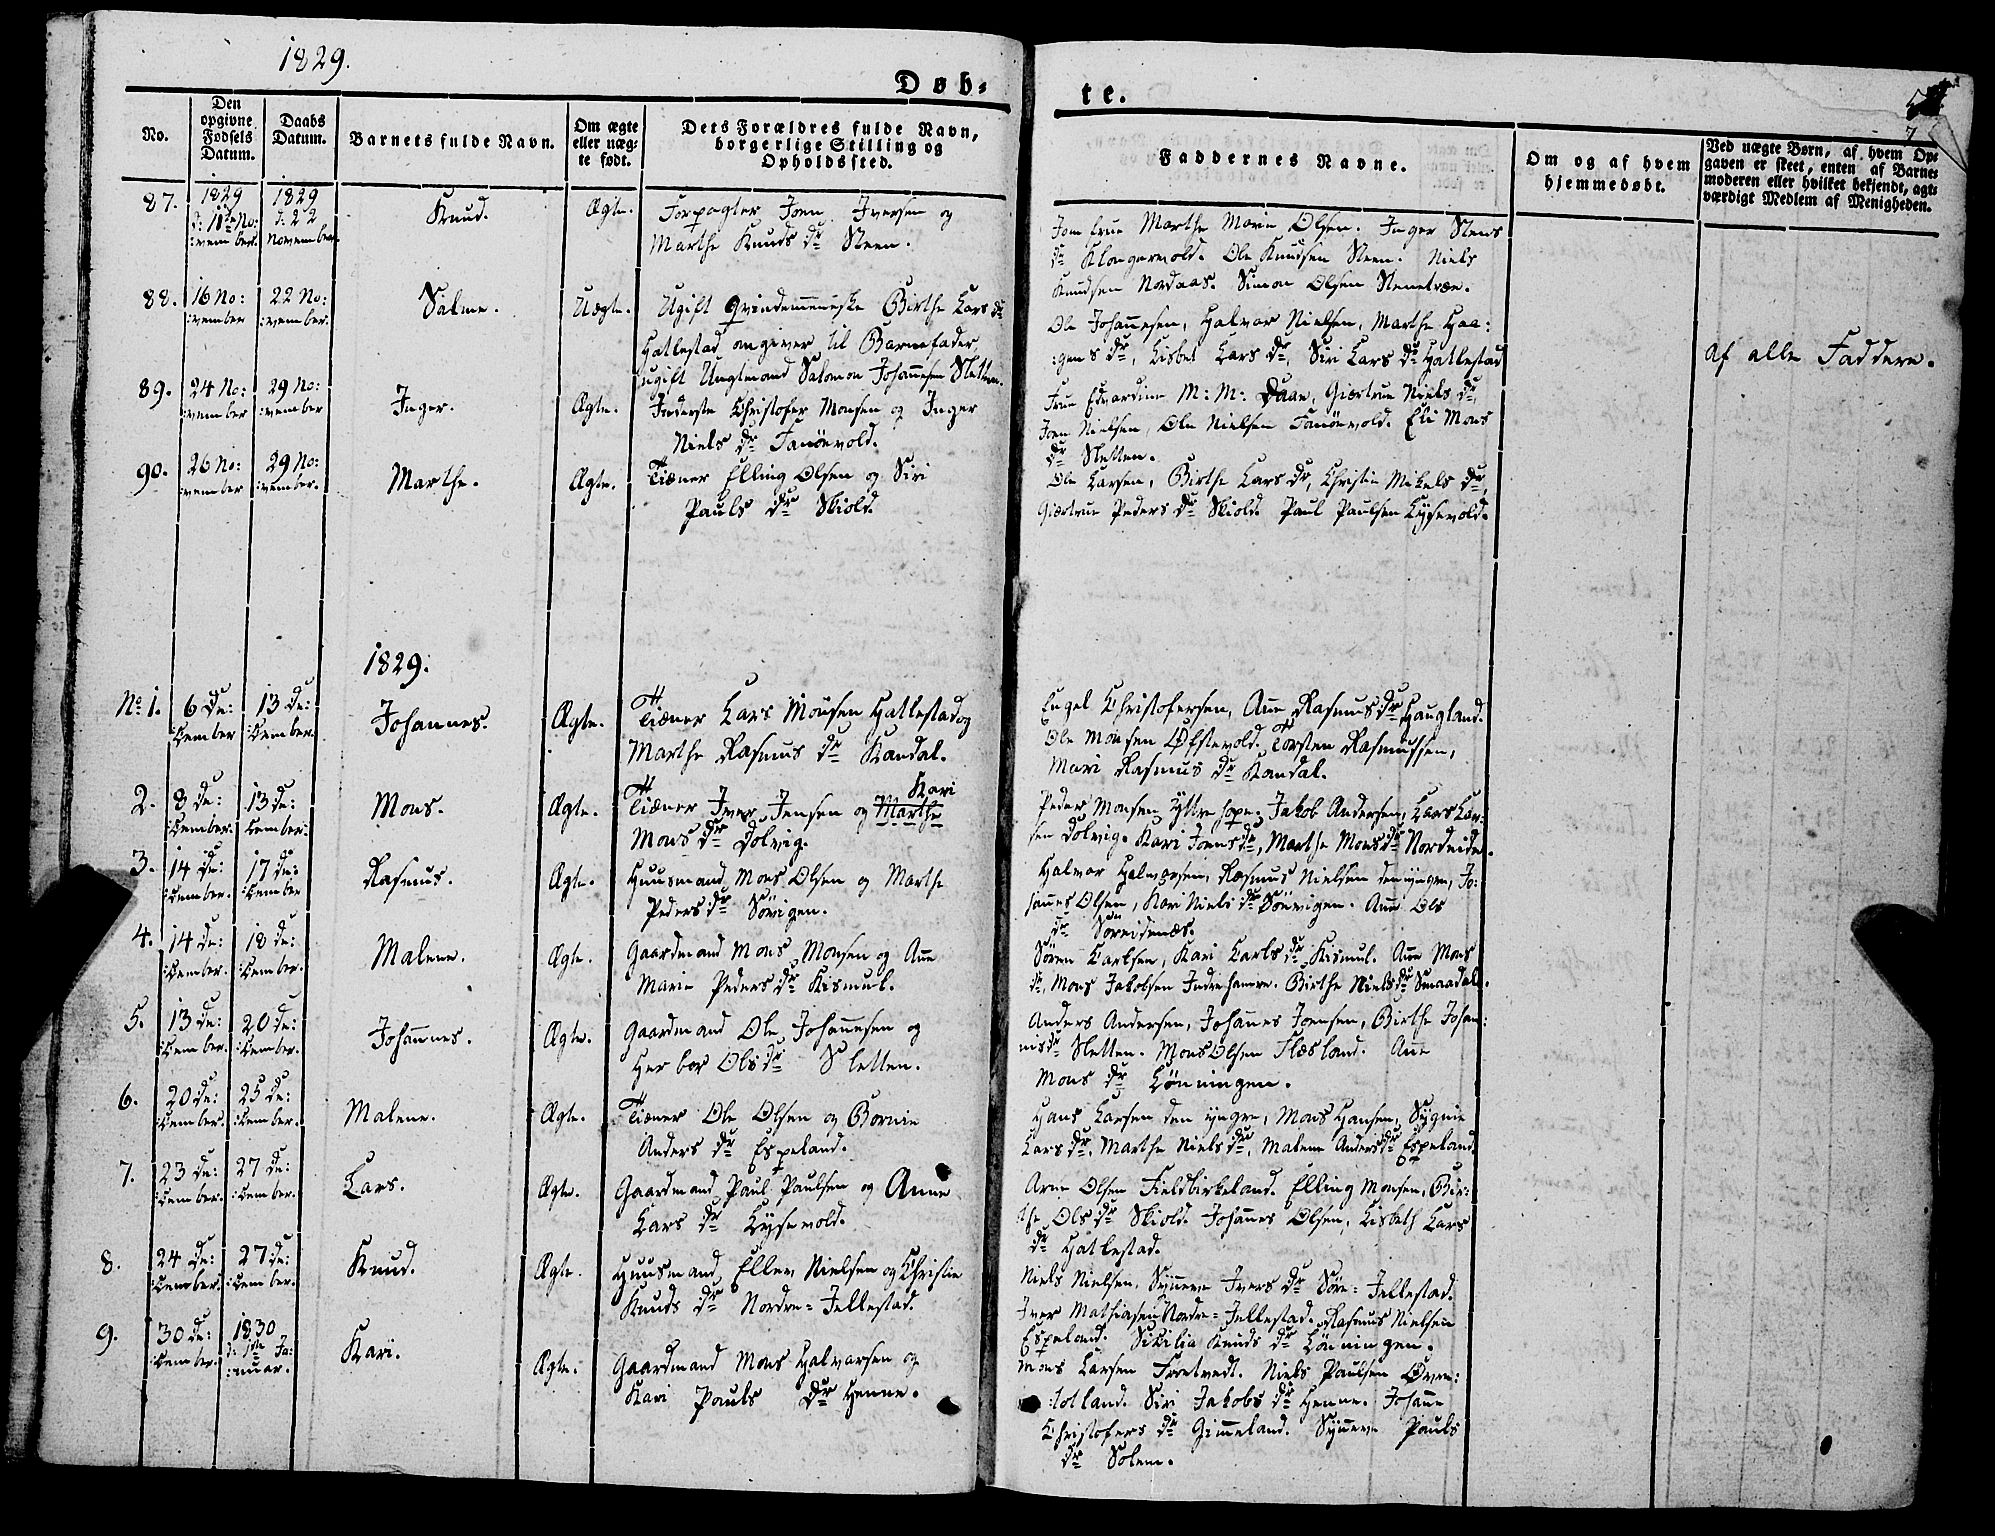 1829.
Døb-
te.
7
No.
Den
opgivne
Fødsels
Datum.
Daabs
Datum.
Barnets fulde Navn.
Om ægte
eller uæg-
te født.
Dets Forældres fulde Navn,
borgerlige Stilling og
Opholdssted.
Faddernes Navne.
Om og af hvem
hjemmedøbt.
Ved uægte Børn, af hvem Op-
gaven er skeet, enten af Barne-
moderen eller hvilket bekjendt, agt-
værdigt Medlem af Menigheden.
87.
1829
d: 18de No:
:vember.
1829
d: 22
November.
Knud.
Ægte.
Forpagter Joen Iversen og
Marthe Knuds dr Steen.
Jomfrue Marthe Marie Olsen. Inger Steens
dr Klongervold. Ole Knudsen Steen. Niels
Knudsen Nordaas. Simon Olsen Stenetræe.
88.
16 No:
:vember
22 No:
:vember.
Salme.
Uægte.
Ugift Qvindemenniske Birthe Lars dr
Hatlestad angiver til Barnefader
ugift Ungkmand Salomon Johannesen Sletten.
Ole Johannesen, Halvor Nielsen, Marthe Haa:
:gens dr, Lisbet Lars dr, Siri Lars dr Hatlestad
af alle Faddere.
89.
24 No:
:vember
29 No:
:vember
Inger.
Ægte.
Inderste Christofer Monsen og Inger
Niels dr Fanøevold.
Frue Edvardine M: M: Daae, Giertrue Niels dr,
Joen Nielsen, Ole Nielsen Fanöevold. Eli Mons
dr Sletten.
90.
26 No:
:vember
29 No:
:vember.
Marthe.
Ægte.
Tiæner Elling Olsen og Siri
Pauls dr Skiold.
Ole Larsen, Birthe Lars dr, Christi Mikels dr,
Giertrue Peders dr Skiold. Paul Paulsen Lysevold.
1829.
No 1.
6 De:
:cember
13 De:
:cember.
Johannes.
Ægte.
Tiæner Lars Monsen Hatlestad og
Marthe Rasmus dr Kandal.
Engel Christofersen, Ane Rasmus dr Haugland.
Ole Monsen Øfstevold. Torsten Rasmussen,
Mari Rasmus dr Kandal.
2.
8 De:
:cember.
13 De:
:cember.
Mons.
Ægte.
Kari
Tiæner Iver Jensen og Marthe
Mons dr Dolvig.
Peder Monsen Yttrehope, Jakob Andersen, Lars Lar:
sen Dolvig. Kari Joensdr, Marthe Monsdr Nordeide.
3.
14 De:
:cember.
17 De:
:cember
Rasmus.
Ægte.
Huusmand Mons Olsen og Marthe
Peders dr Sørvigen.
Halvor Halvorsen, Rasmus Nielsen den yngre, Jo:
hannes Olsen, Kari Niels dr Sørvigen. Ane Ols
dr Søreidenæs.
4.
14 De:
:cember.
18 De:
:cember.
Malene.
Ægte.
Gaardmand Mons Monsen og Ane
Marie Peders dr Kismul.
Søren Carlsen, Kari Carls dr Kismul. Ane Mons
dr, Mons Jakobsen Indrehamre. Birthe Nielsdr Smaadal.
5.
13 De:
:cember.
20 De:
:cember.
Johannes.
Ægte.
Gaardmand Ole Johannesen og
Herbor Ols dr Sletten.
Anders Andersen, Johannes Joensen, Birthe Johan:
nisdr Sletten. Mons Olsen Flæsland. Ane
Mons dr Lønningen.
6.
20 De:
:cember.
25 De:
:cember.
Malene.
Ægte.
Tiæner Ole Olsen og Børnie
Anders dr Espeland.
Hans Larsen den yngre, Mons Hansen, Sygnie
Lars dr, Marthe Niels dr, Malene Anders dr Espeland.
7.
23 De:
:cember.
27 De:
:cember.
Lars.
Ægte.
Gaardmand Paul Paulsen og Anne
Lars dr Lysevold.
Arne Olsen Fieldbirkeland. Elling Monsen, Bir:
the Ols dr Skiold. Johannes Olsen, Lisbeth Lars
dr Hatlestad.
8.
24 De:
:cember.
27 De:
:cember.
Knud.
Ægte.
Huusmand Ellen Nielsen og Christie
Knuds dr Nordre=Jellestad.
Niels Nielsen, Synneve Ivers dr Søre=Jellestad.
Iver Mathiasen Nordre=Jellestad. Rasmus Nielsen
Espeland. Sikilia Knuds dr Lønningen.
9.
30 De:
:cember.
1830
d: 1ste Ja:
:nuar.
Kari.
Ægte.
Gaardmand Mons Halvorsen og
Kari Pauls dr Henne.
Mons Larsen Troetvedt. Niels Paulsen Øvre:
:totland. Siri Jakobs dr Henne. Johanne
Christofers dr Gimmeland. Synneve Pauls
dr Solem.